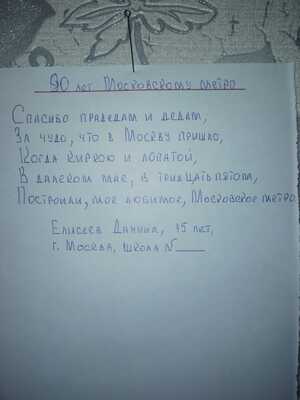 90 лет Московскому метро
Спасибо прадедам и дедам,
За чудо, что в Москву пришло,
Когда киркою и лопатой,
В далеком мае, в тридцать пятом,
Построили, мое любимое, Московское метро
Елисеев Даниил, 15 лет,
г. Москва, школа №